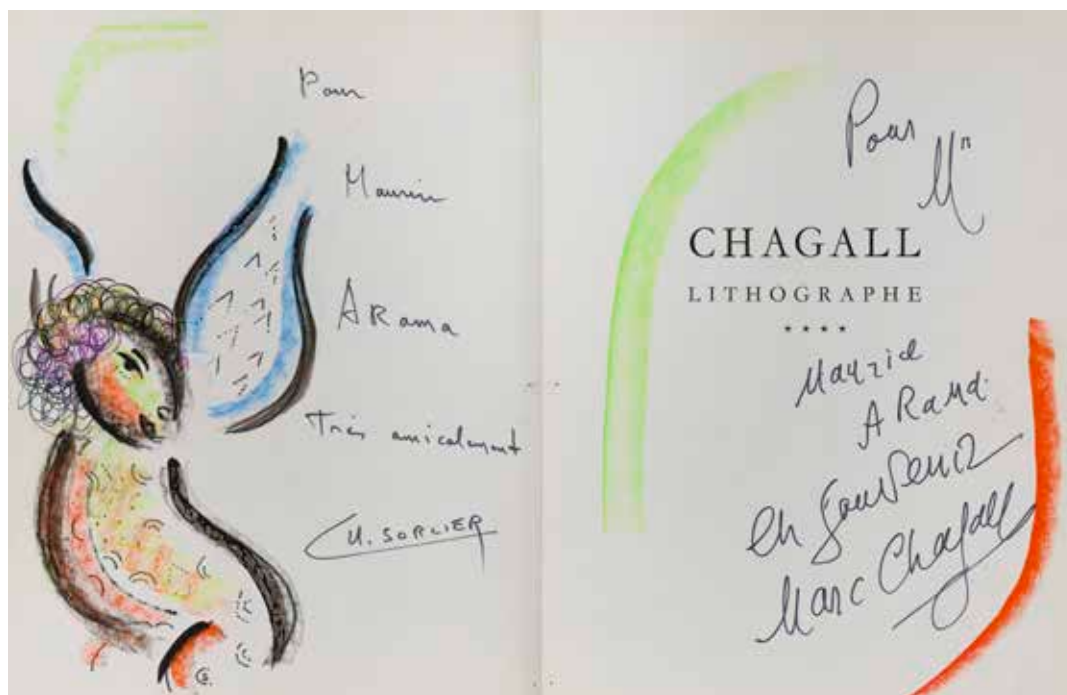 Pour
Maurice
ARama
Très amicalement
CH. SORLIER
Pour
Mr
CHAGALL
LITHOGRAPHE
****
Maurice
ARama
en souvenir
Marc Chagall